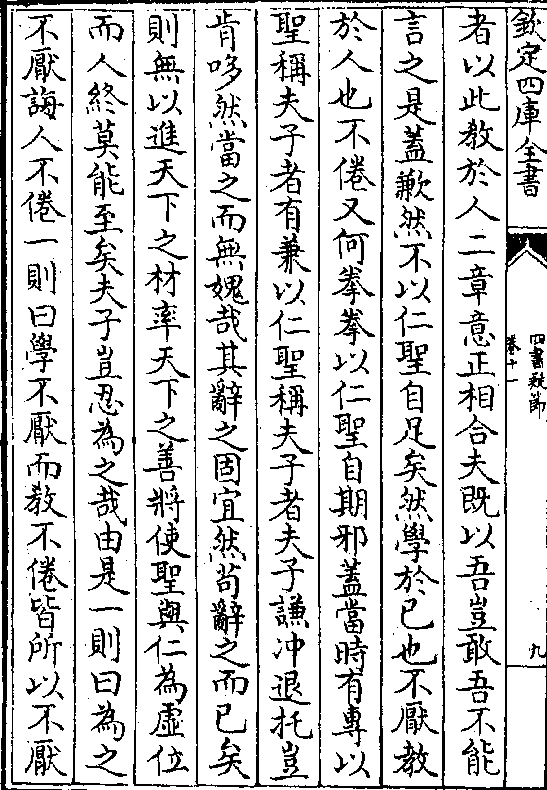 欽定四庫全書
四書疑節
卷十一
九
者以此教於人二章意正相合夫既以吾豈敢吾不能
言之是蓋歉然不以仁聖自足矣然學於已也不厭教
於人也不倦又何拳拳以仁聖自期邪蓋當時有專以
聖稱夫子者有兼以仁聖稱夫子者夫子謙冲退托豈
肯哆然當之而無媿哉其辭之固宜然苟辭之而已矣
則無以進天下之材率天下之善將使聖與仁為虚位
而人終莫能至矣夫子豈忍為之哉由是一則曰為之
不厭誨人不倦一則曰學不厭而教不倦皆所以不厭